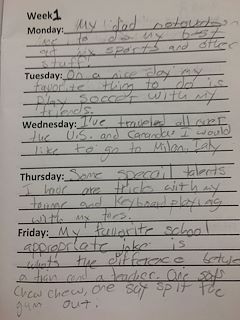 Week1
Monday: My dad
me to do my best
at my sports and other
stuff!
Tuesday: On a nice day my
favorite thing to do is
play soccer with my
friends.
Wednesday: I've traveled all over
the U.S. and Canada I would
like to go to Milan, Italy
Thursday: Some special talents
I have are tricks with my
tounge and Keyboard playing
with my toes.
Friday: My favorite school
appropriate joke is
whats the difference between
a train and a teacher. One says
chew chew, one say spit the
gum out.